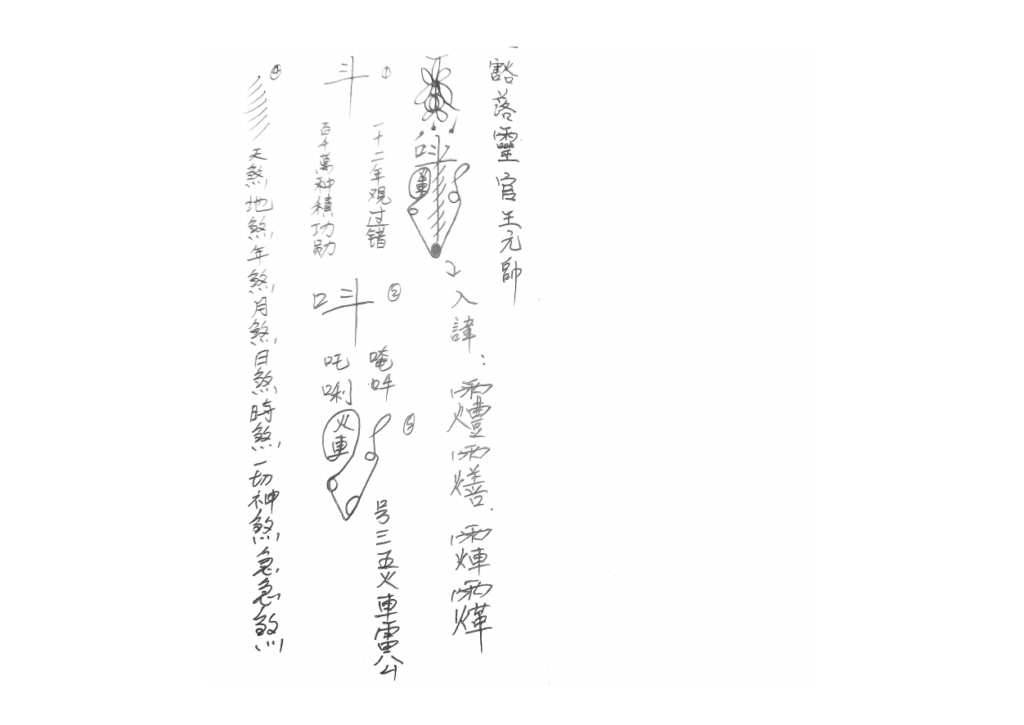 豁落靈官王元帥
叫
火車
入諱：
①
斗
一十二年观过错
百千萬种積功勋
②
叫
唵吽
吒唎
③
火車
号三五火車雷公
④
天煞地煞年煞月煞日煞時煞一切神煞急急煞